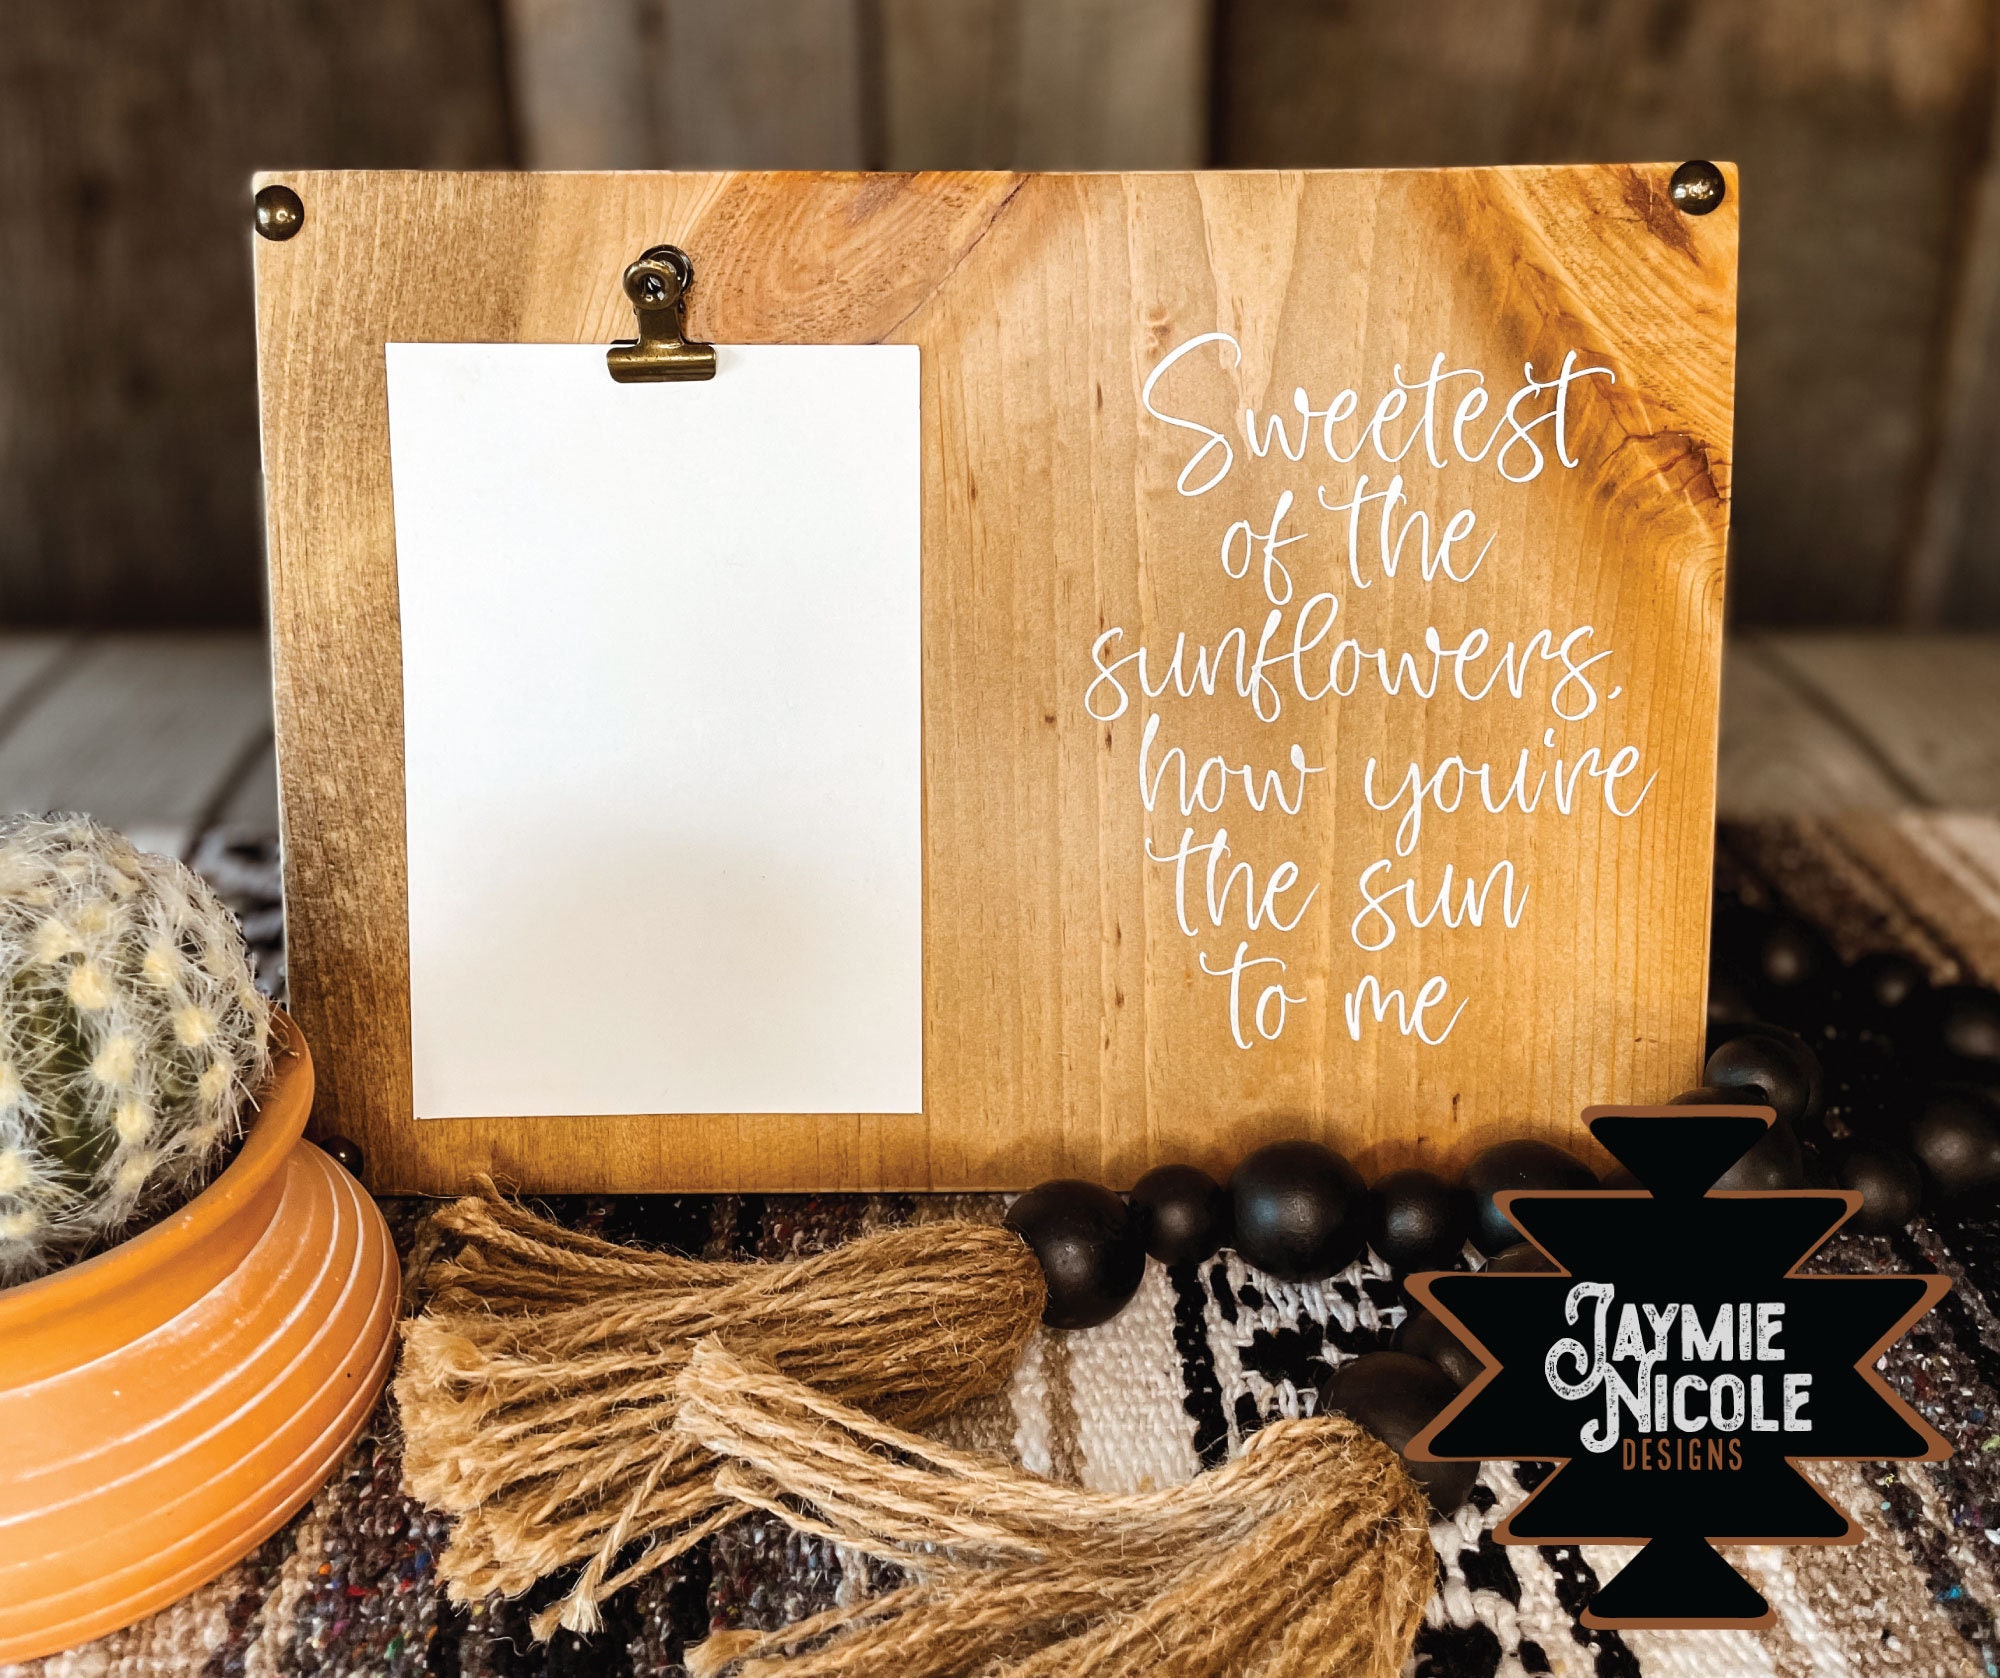 Sweetest
of the
sunflowers,
how you're
the sun
to me
JAYMIE
NICOLE
DESIGNS